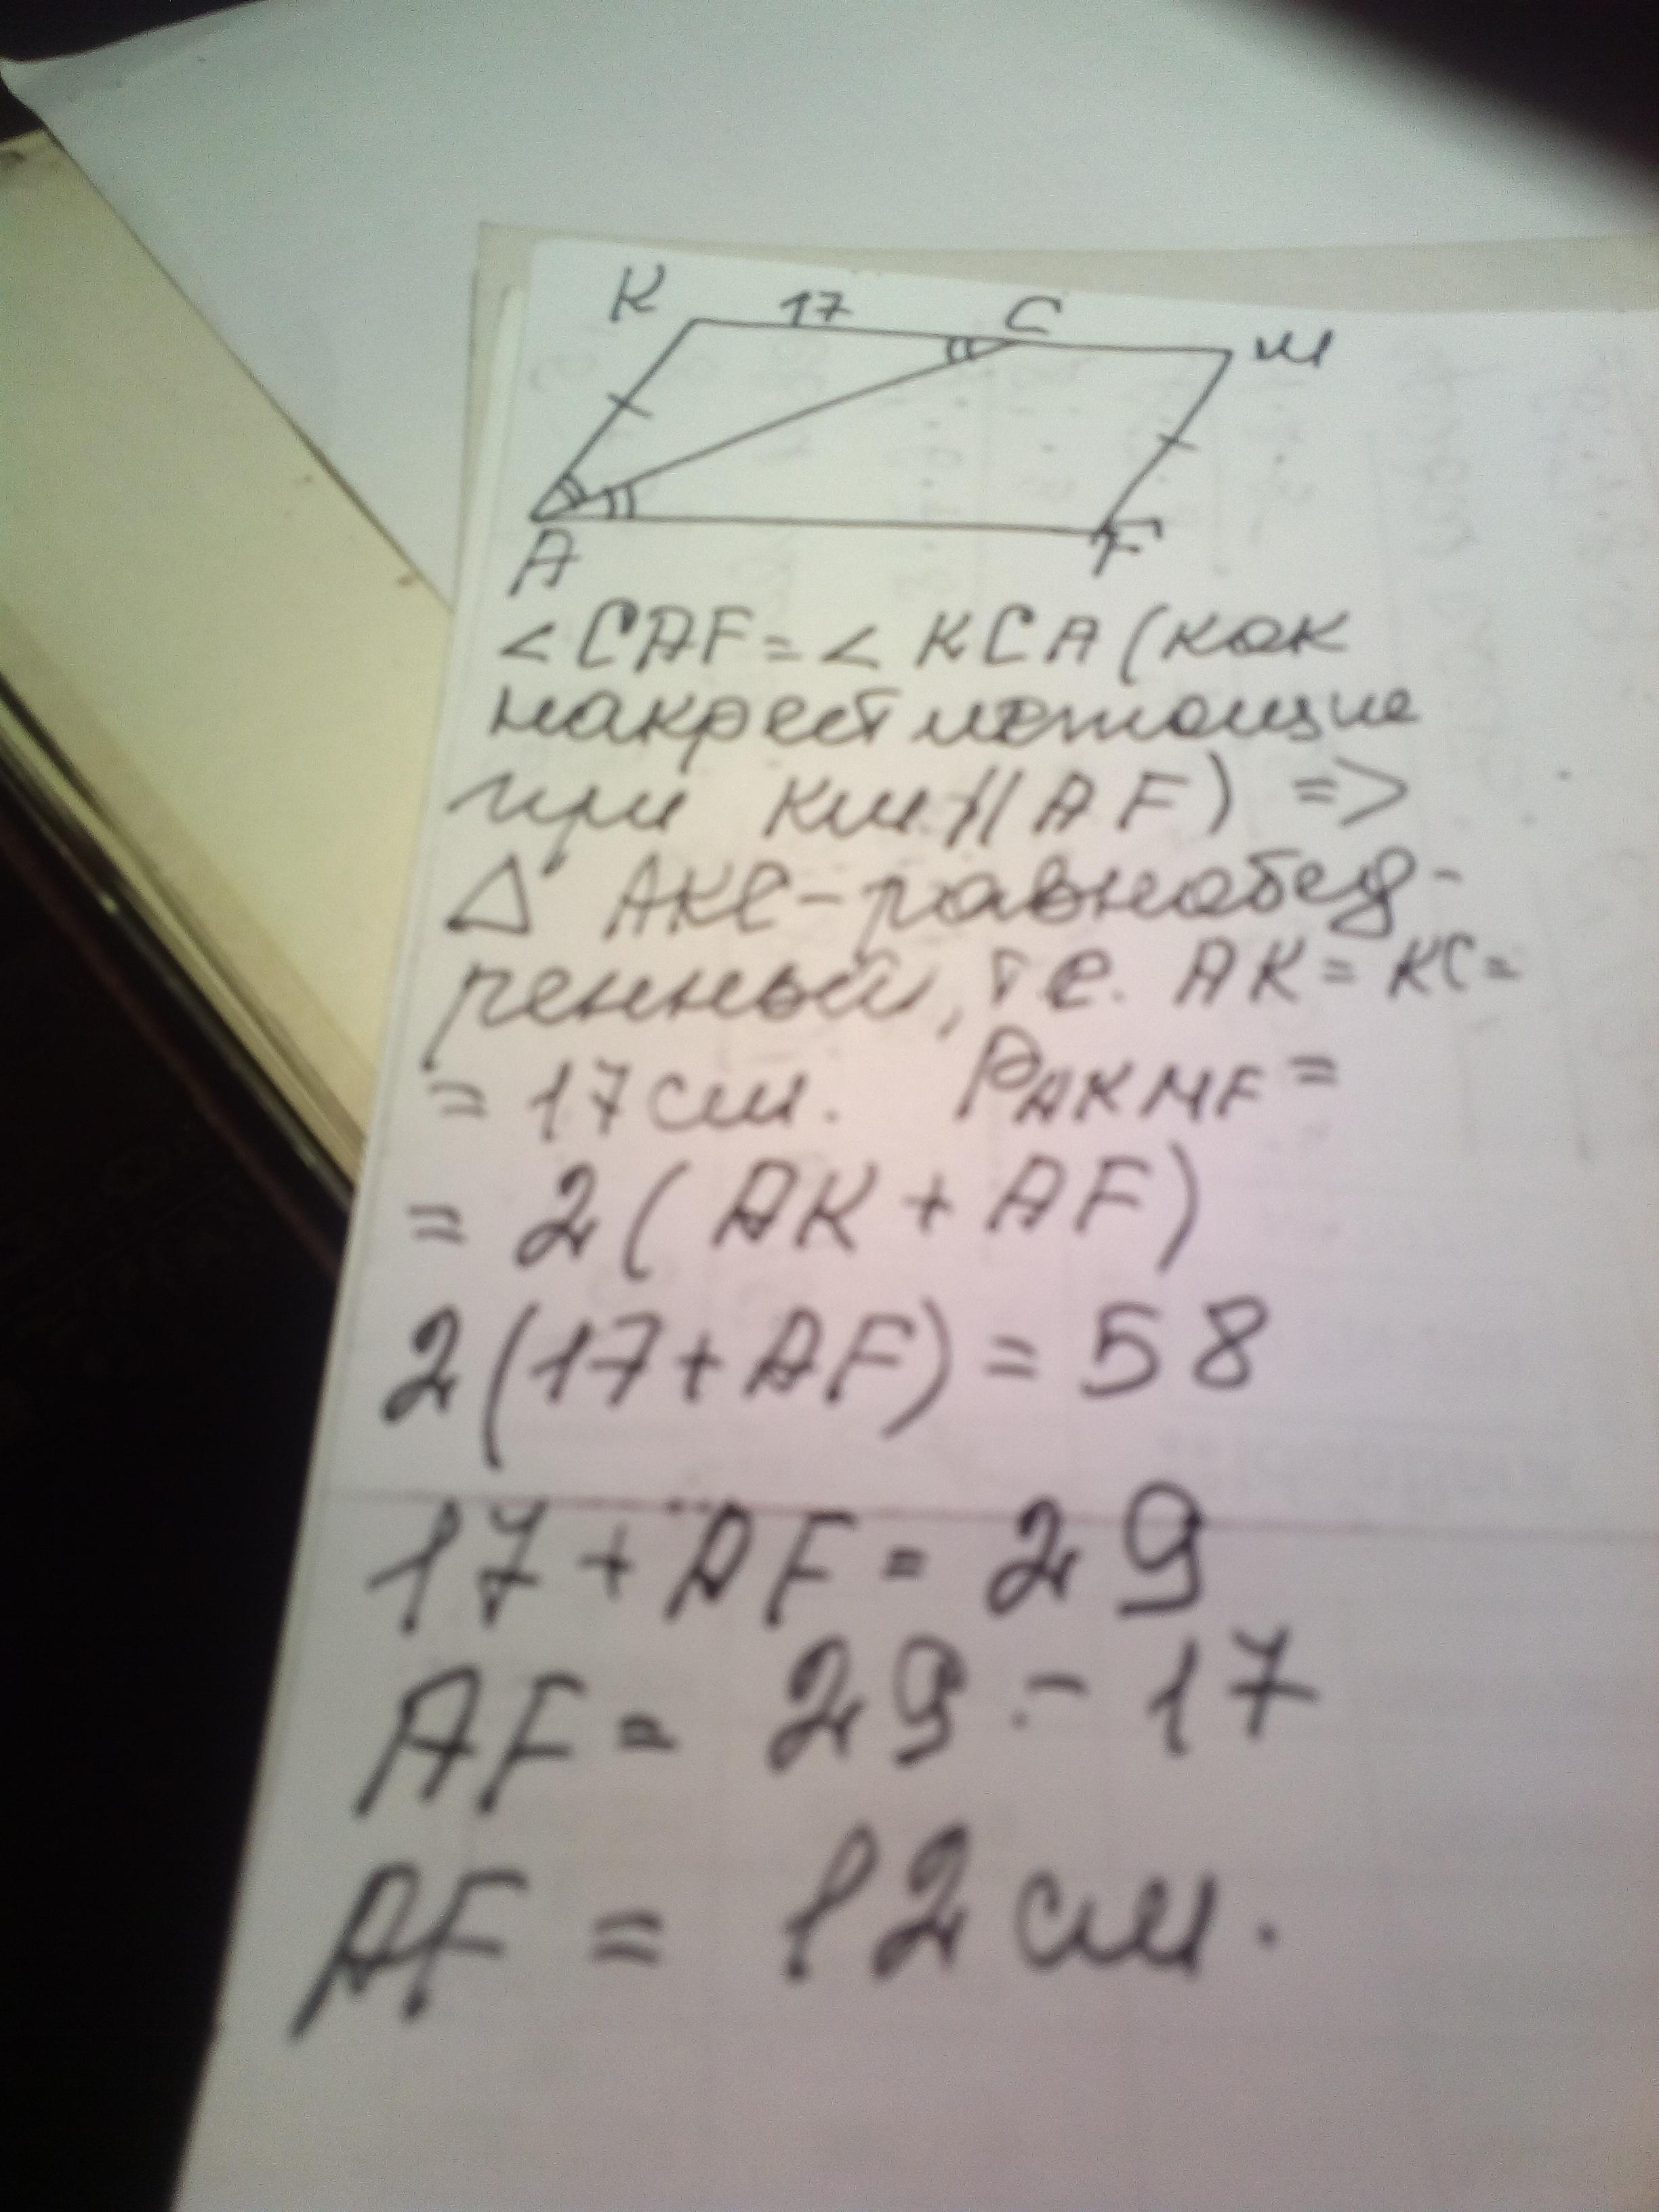 K 17 C M
A F
<CAF=<KCA (как
накрест лежащие
при KM || AF) =>
Δ AKC - равнобед-
ренный, т е. AK = KC =
= 17 см. PAKMF =
= 2 ( AK + AF)
2(17+AF) = 58
17 + AF = 29
AF = 29 - 17
AF = 12 см.